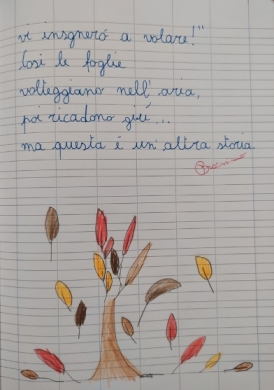 vi insgnerò a volare!"
Così le foglie
volteggiano nell'aria,
poi ricadono giù...
ma questa è un'altra storia